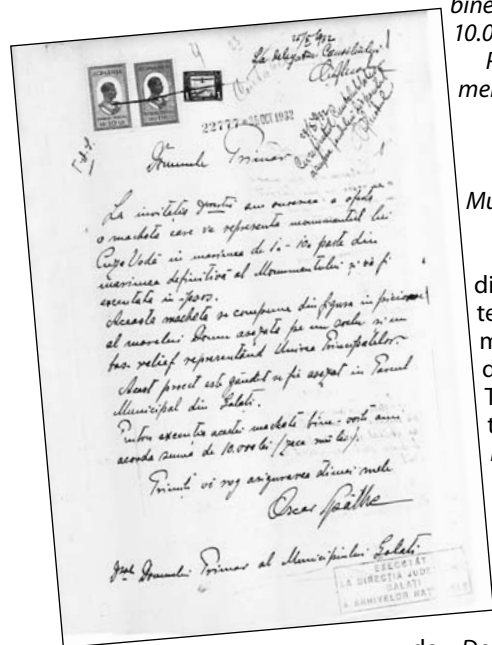 25/X 932
La delegația Consiliului
22777 * 25 OCT 1932
Domnule Primar
La invitația Dvoastră am onoarea a oferta
o machetă care va reprezenta monumentul lui
Cuza Vodă în mărimea de 1a - 10a parte din
mărimea definitivă al Monumentului și va fi
executată în ipsos.
Această machetă se compune din figura în picioare
al marelui Domn așezată pe un soclu și un
bas. relief reprezentând Unirea Principatelor.-
Acest proect este gândit se fie așezat în Parcul
Municipal din Galați.
Pentru execuția acestei machete bine-voiți a-mi
acorda suma de 10.000 lei (zece mii lei).
Primiți vă rog asigurarea stimei mele
Oscar Späthe
Domnului Primar al Municipiului Galați
EXECUTAT
LA DIRECȚIA JUD
GALAȚI
A ARHIVELOR NAȚ
bine
10.0
mer
Mu
di
te
m
T
t
de